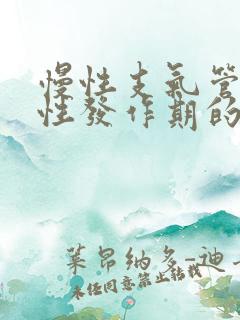 慢性支氣管
性發作期的
萊昂納多-迪
未经同意禁止转载